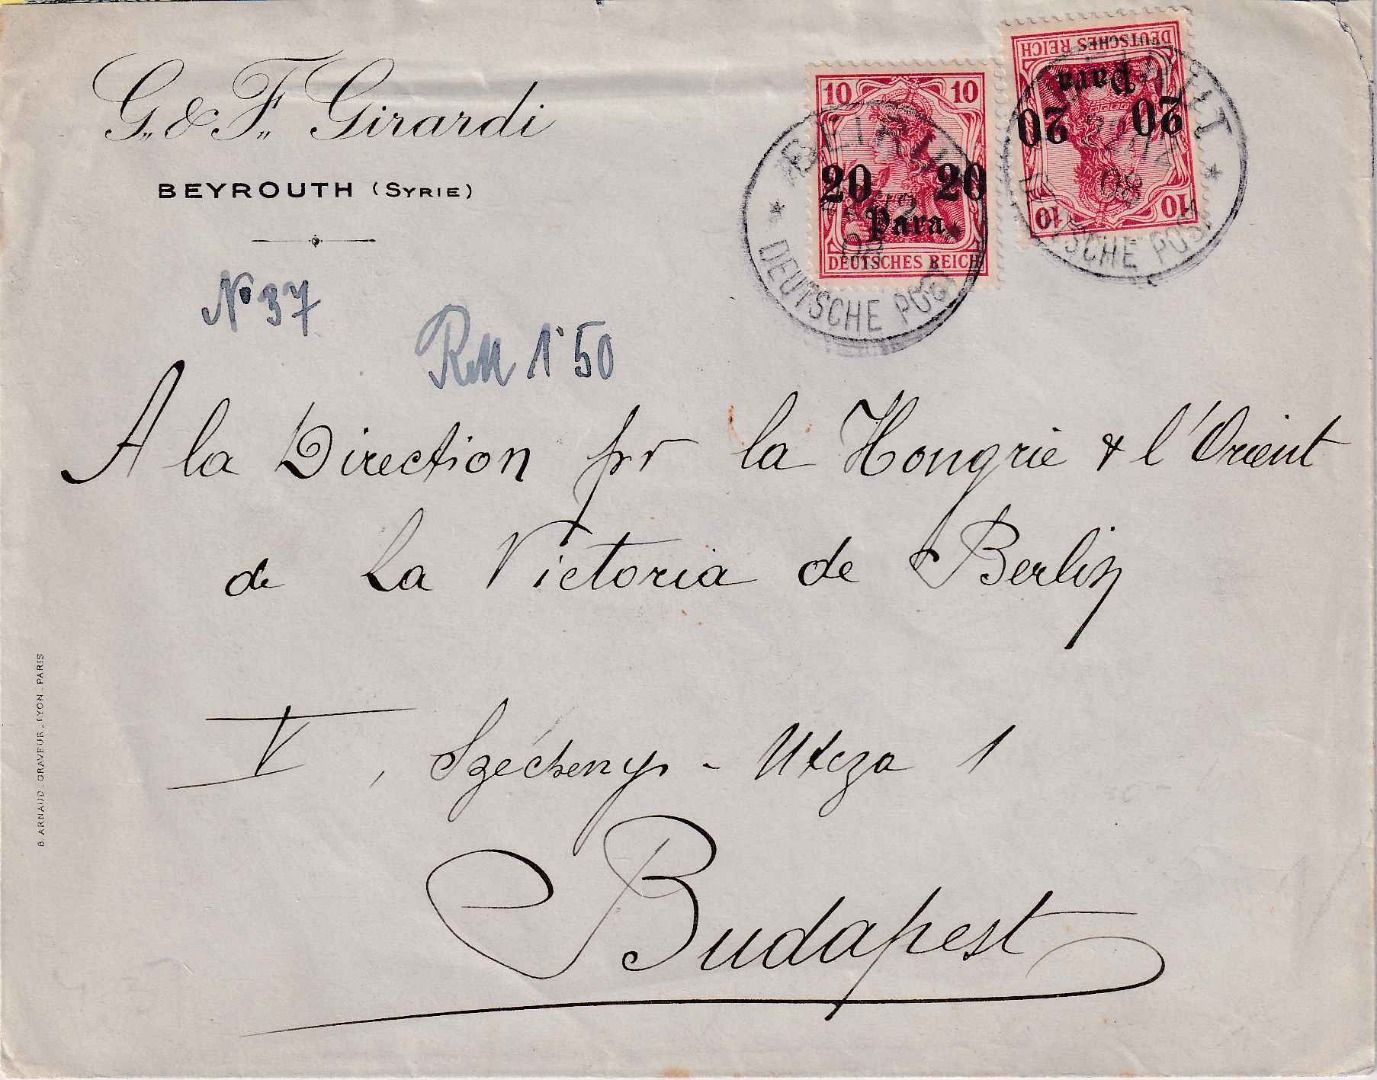 G. & F. Girardi
BEYROUTH (SYRIE)
10 10
20 20
Para
DEUTSCHES REICH
BEIRUT
DEUTSCHE POST
DEUTSCHES REICH
Para
20 20
10 10
22/12
08
DEUTSCHE POST
No 37
RM 1'50
A la Direction pr la Hongrie & l'Orient
de La Victoria de Berlin
V, Széchenyi-Utcza 1
Budapest
B. ARNAUD. GRAVEUR. LYON. PARIS